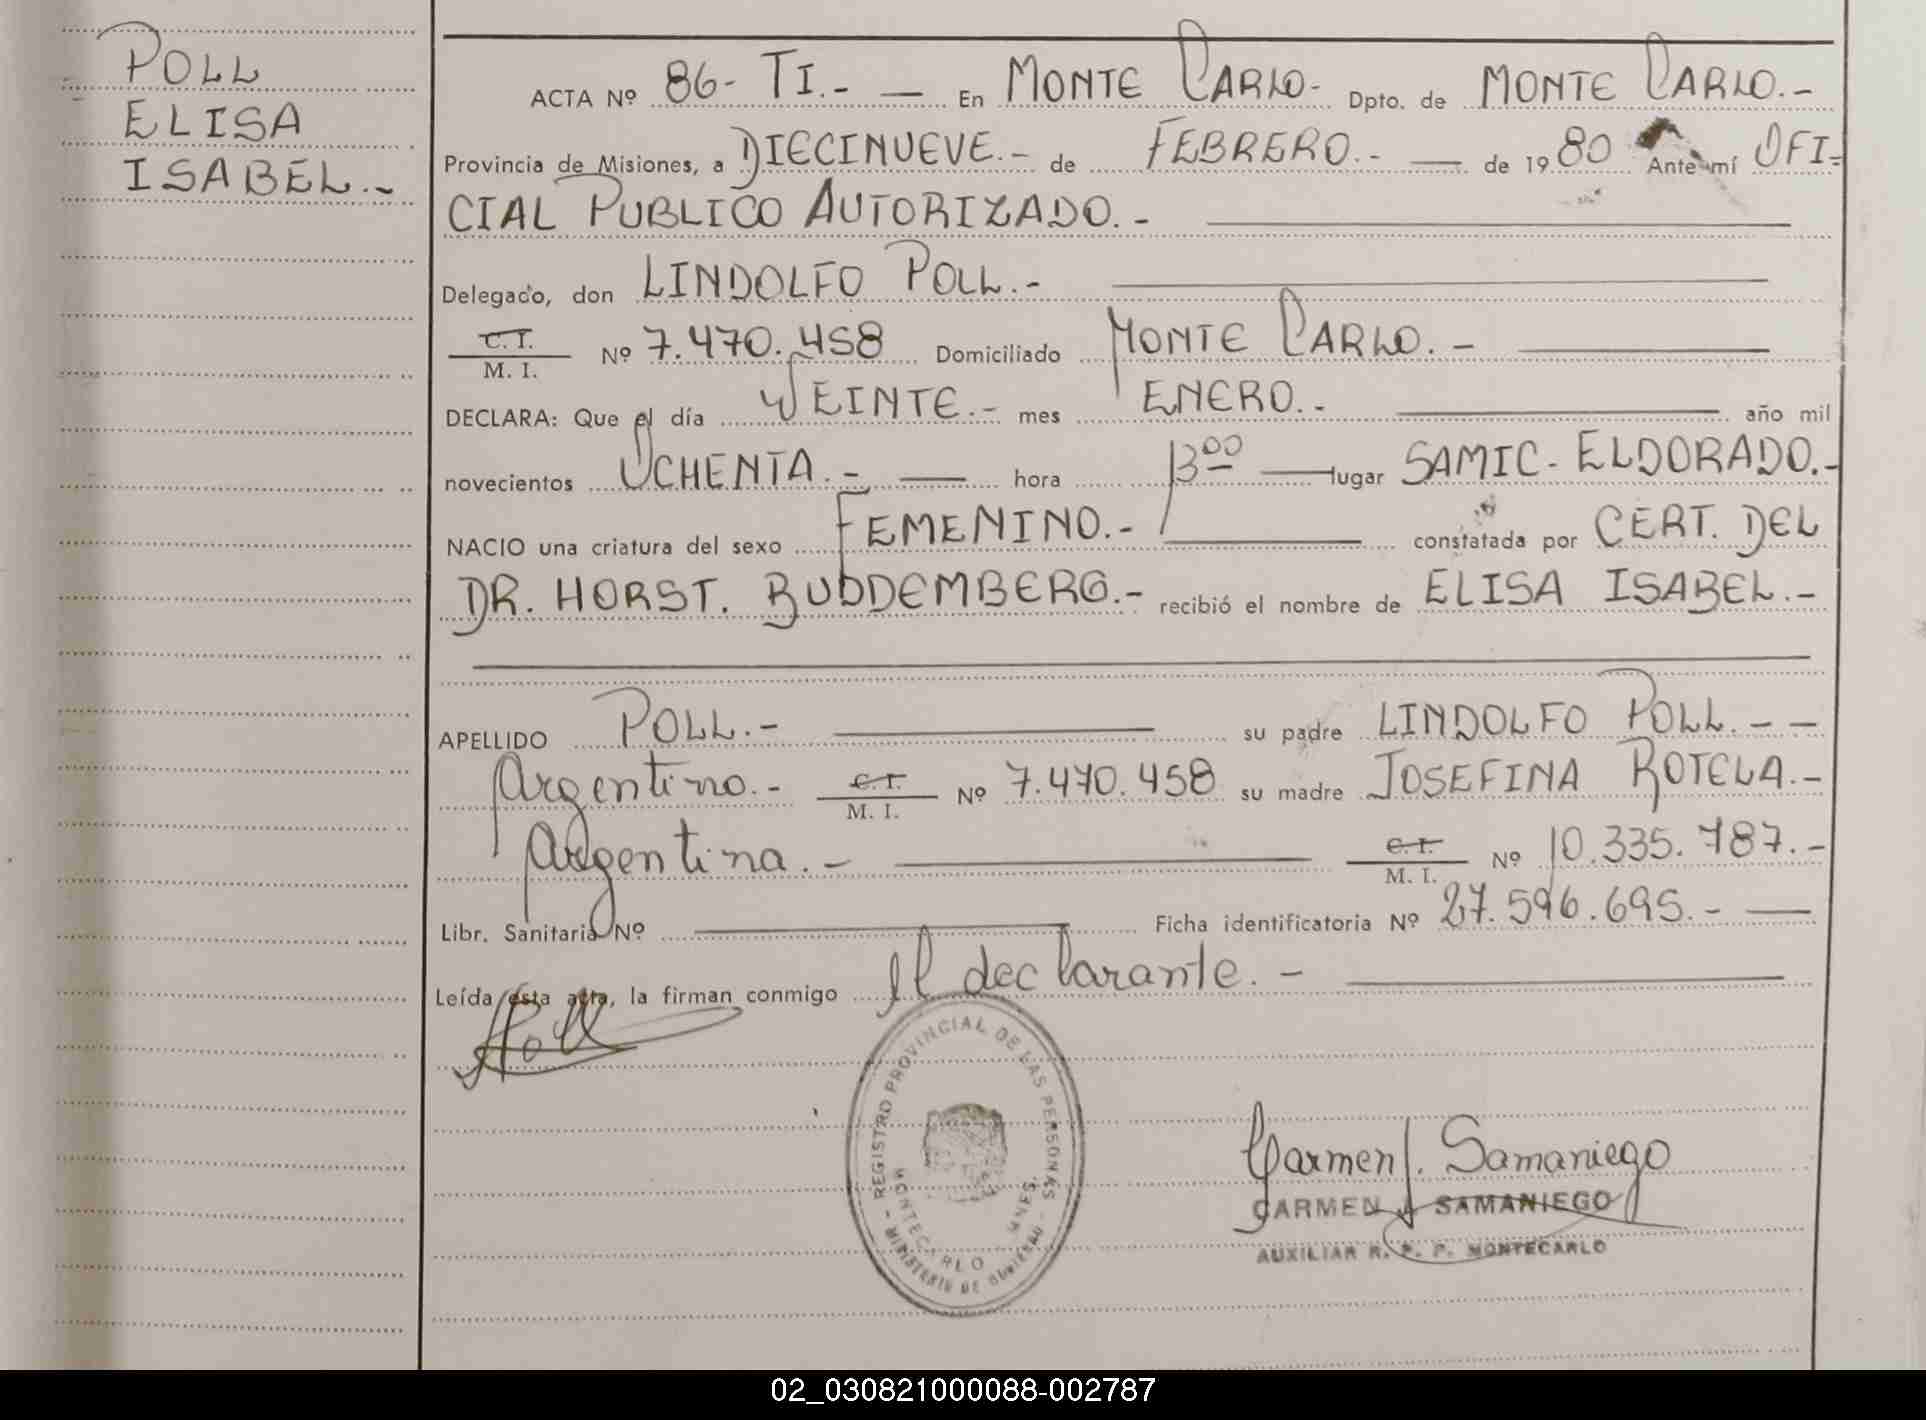 POLL
ELISA
ISABEL.-
ACTA Nº 86- TI.- — En MONTE CARLO- Dpto. de MONTE CARLO.-
Provincia de Misiones, a DIECINUEVE.- de FEBRERO.- — de 1980 Ante mí OFI=
CIAL PUBLICO AUTORIZADO.-
Delegado, don LINDOLFO POLL.-
C. I.
M. I. Nº 7.470.458 Domiciliado MONTE CARLO.-
DECLARA: Que el día VEINTE.- mes ENERO.- año mil
novecientos OCHENTA.- — hora 13 00 — lugar SAMIC- ELDORADO.-
NACIO una criatura del sexo FEMENINO.- constatada por CERT. DEL
DR. HORST. BUDDEMBERG.- recibió el nombre de ELISA ISABEL.-
APELLIDO POLL.- su padre LINDOLFO POLL.- -
Argentino.- C. I. M. I. Nº 7.470.458 su madre JOSEFINA ROTELA.-
Argentina.- C. I. M. I. Nº 10.335.787.-
Libr. Sanitaria Nº Ficha identificatoria Nº 27.596.695.- —
Leída esta acta, la firman conmigo el declarante.-
Poll
REGISTRO PROVINCIAL DE LAS PERSONAS - MINISTERIO DE GOBIERNO -
MONTECARLO - MNES.
Carmen J. Samaniego
CARMEN J. SAMANIEGO
AUXILIAR R. P. P. MONTECARLO
02_030821000088-002787